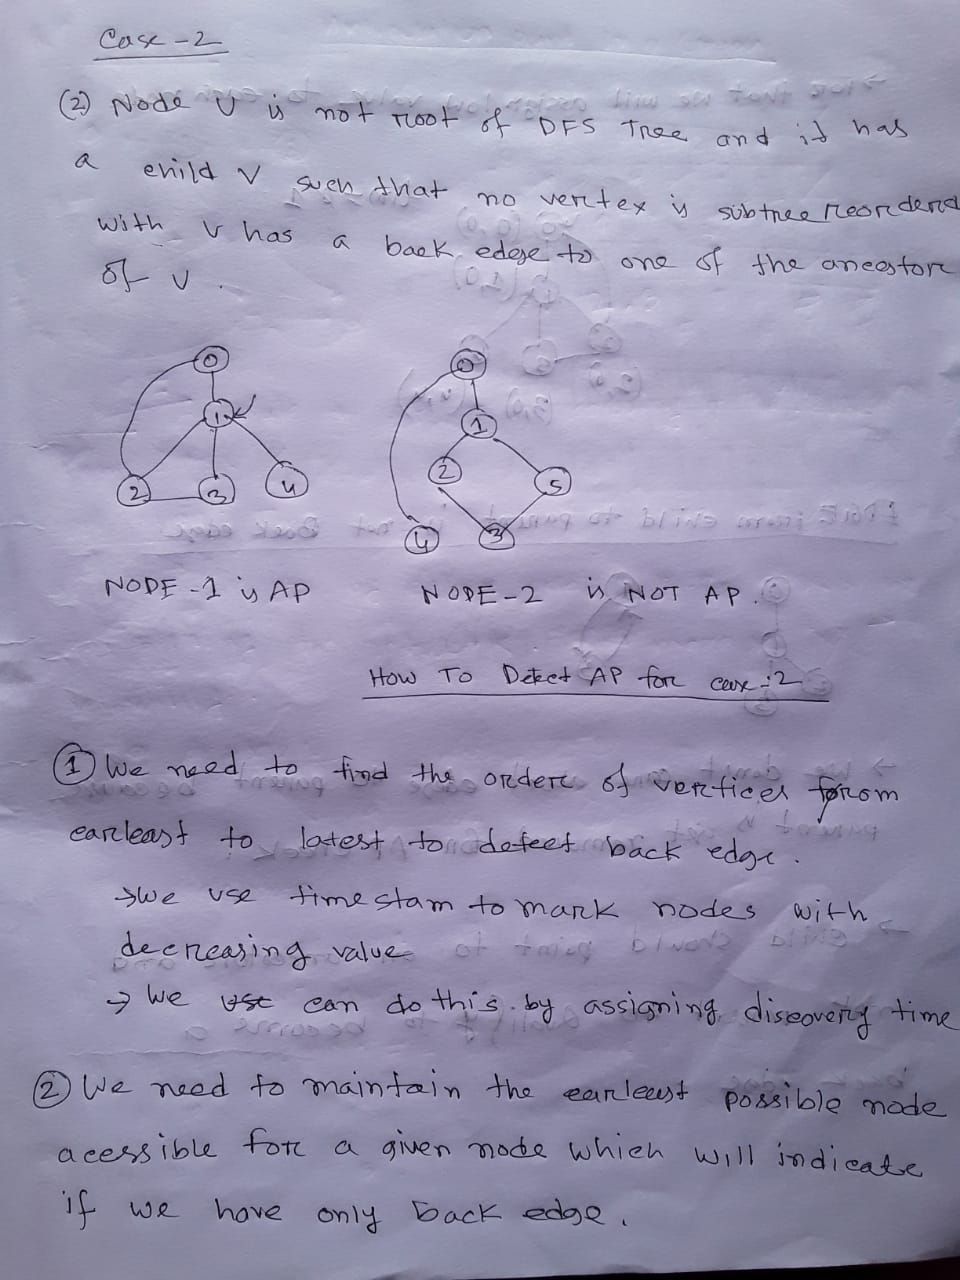 Case-2
(2) Node U is not root of DFS Tree and it has
a child V such that no vertex is subtree reordered
with v has a back edge to one of the ancestor
of v.
0
1
2 3 4
0
1
2 5
4 3
NODE-1 is AP NODE-2 is NOT AP.
How To Detect AP for case-2
1 We need to find the order of vertices from
earleast to latest to detect back edge.
→We use timestam to mark nodes with
decreasing value
→ We use can do this by assigning discovery time
2 We need to maintain the earleast possible node
acessible for a given node which will indicate
if we have only back edge.